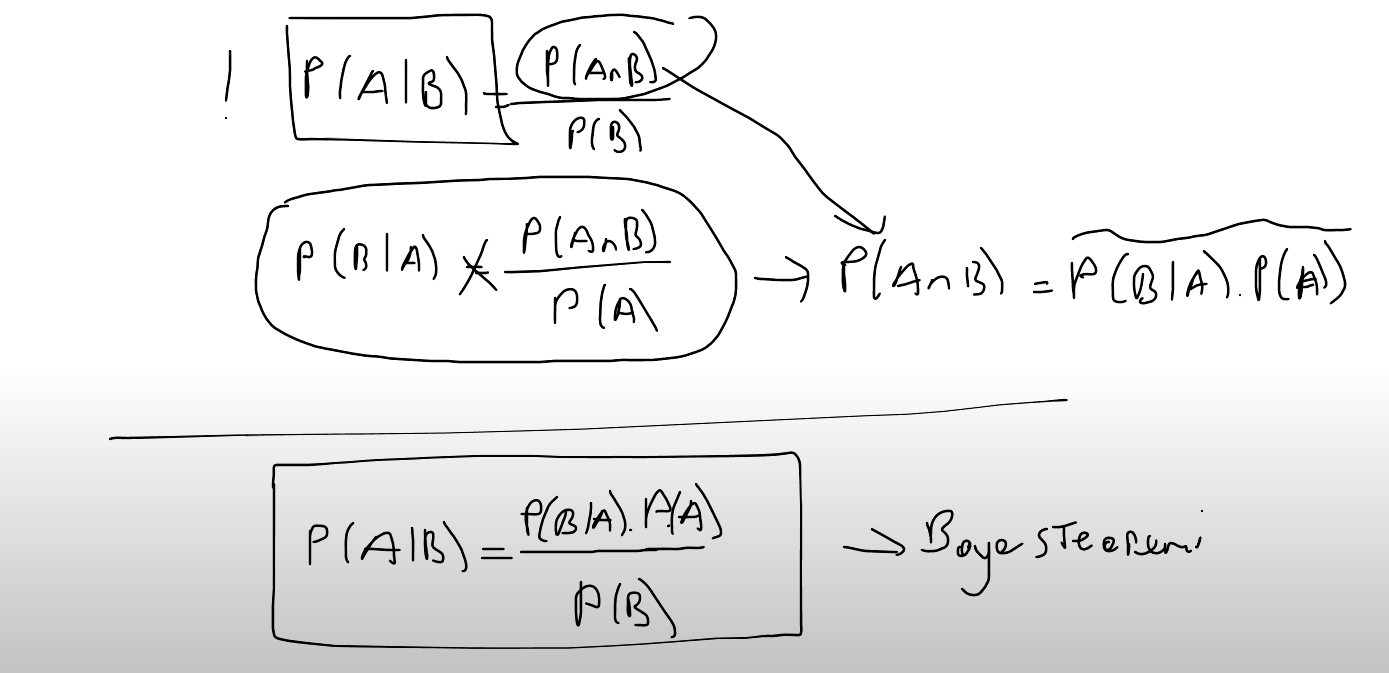 ! P(A|B) = P(A∩B) / P(B)
P(B|A) = P(A∩B) / P(A) → P(A∩B) = P(B|A) . P(A)
P(A|B) = P(B|A) . P(A) / P(B) → Bayes Teoremi